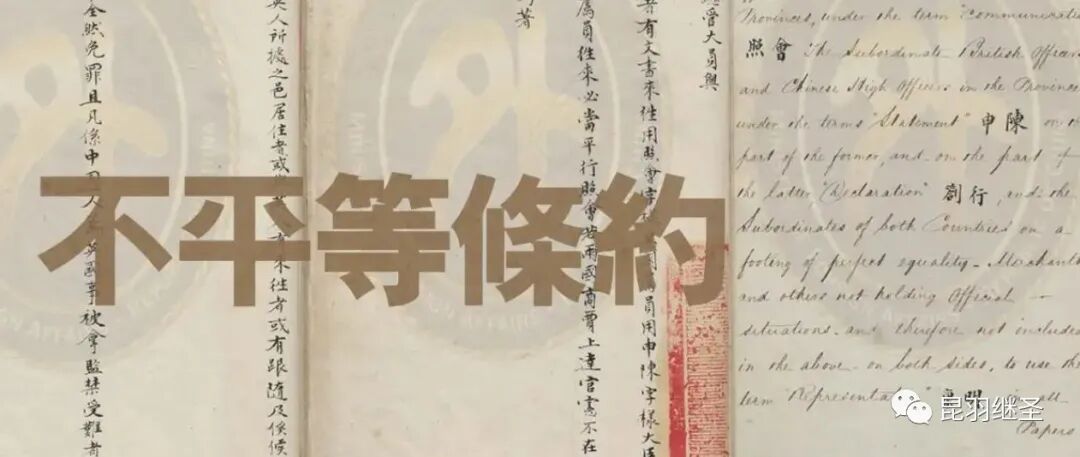 不平等條約
大員與
有文書來往用照會字國屬員用申陳字樣大臣
屬員往來必當平行照會若兩國商賈上達官憲不在
著
英人所據之邑居住者或有來往者或有跟隨及俟候
全然免罪且凡係中人為英國事被拿監禁受難者
Provinces, under the term "Communication
照會 The Subordinate British Officers
and Chinese High Officers in the Provinces
under the terms "Statement" 申陳 on the
part of the former, and on the part of
the latter "Declaration" 劄行, and the
Subordinates of both Countries on a
footing of perfect equality. Merchants
and others not holding Official
situations and therefore not included
in the above on both sides, to use the
term "Representation" 明 in all
Papers
昆羽继圣